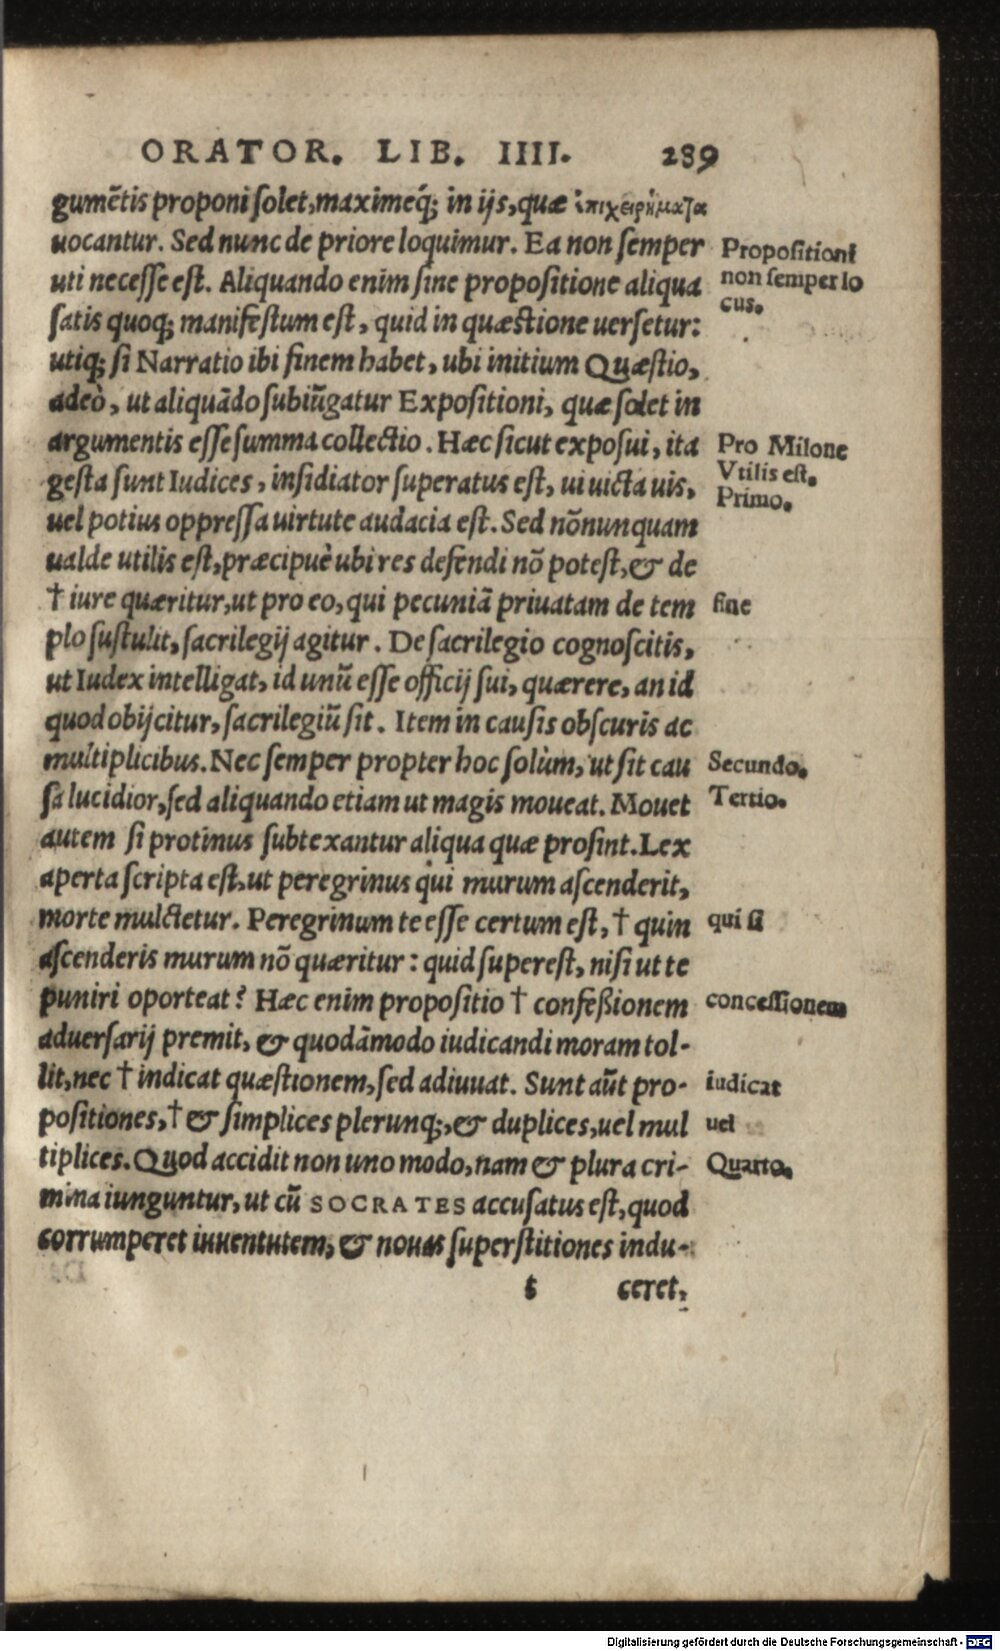 ORATOR. LIB. IIII. 289
gumẽtis proponi ſolet, maximeq́; in ijs, quæ ἐπιχειρήματα
uocantur. Sed nunc de priore loquimur. Ea non ſemper
Propoſitioni
uti neceſſe eſt. Aliquando enim ſine propoſitione aliqua
non ſemper lo
cus.
ſatis quoq; manifeſtum eſt, quid in quæſtione uerſetur:
utiq; ſi Narratio ibi finem habet, ubi initium Quæſtio,
adeò, ut aliquãdo ſubiũgatur Expoſitioni, quæ ſolet in
argumentis eſſe ſumma collectio. Hæc ſicut expoſui, ita
Pro Milone
geſta ſunt Iudices, inſidiator ſuperatus eſt, ui uicta uis,
Vtilis eſt.
Primo.
uel potius oppreſſa uirtute audacia eſt. Sed nõnunquam
ualde utilis eſt, præcipuè ubi res defendi nõ poteſt, & de
† iure quæritur, ut pro eo, qui pecuniã priuatam de tem
fine
plo ſuſtulit, ſacrilegij agitur. De ſacrilegio cognoſcitis,
ut Iudex intelligat, id unũ eſſe officij ſui, quærere, an id
quod obijcitur, ſacrilegiũ ſit. Item in cauſis obſcuris ac
multiplicibus. Nec ſemper propter hoc ſolùm, ut ſit cau
Secundo.
ſa lucidior, ſed aliquando etiam ut magis moueat. Mouet
Tertio.
autem ſi protinus ſubtexantur aliqua quæ proſint. Lex
aperta ſcripta eſt, ut peregrinus qui murum aſcenderit,
morte mulctetur. Peregrinum te eſſe certum eſt, † quin
qui ſi
aſcenderis murum nõ quæritur: quid ſupereſt, niſi ut te
puniri oporteat? Hæc enim propoſitio † confeßionem
conceſſionem
aduerſarij premit, & quodãmodo iudicandi moram tol-
lit, nec † indicat quæſtionem, ſed adiuuat. Sunt aũt pro-
iudicat
poſitiones, † & ſimplices plerunq;, & duplices, uel mul
uel
tiplices. Quod accidit non uno modo, nam & plura cri-
Quarto.
mina iunguntur, ut cũ SOCRATES accuſatus eſt, quod
corrumperet iuuentutem, & nouas ſuperſtitiones indu-
s ceret,
Digitalisierung gefördert durch die Deutsche Forschungsgemeinschaft - DFG